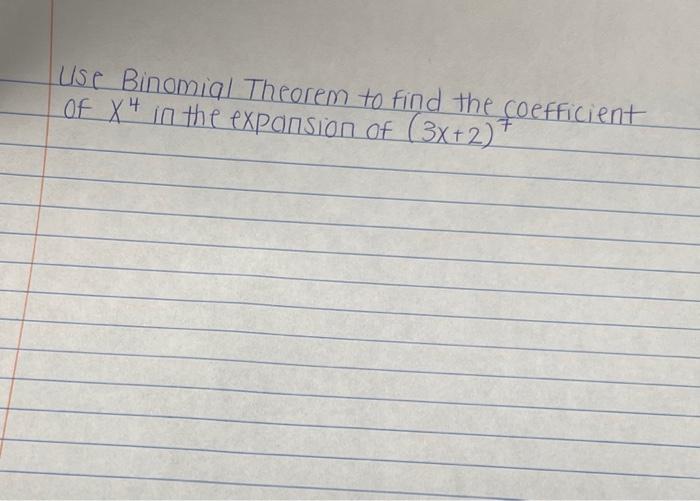 Use Binomial Theorem to find the coefficient
of x⁴ in the expansion of (3x+2)⁷